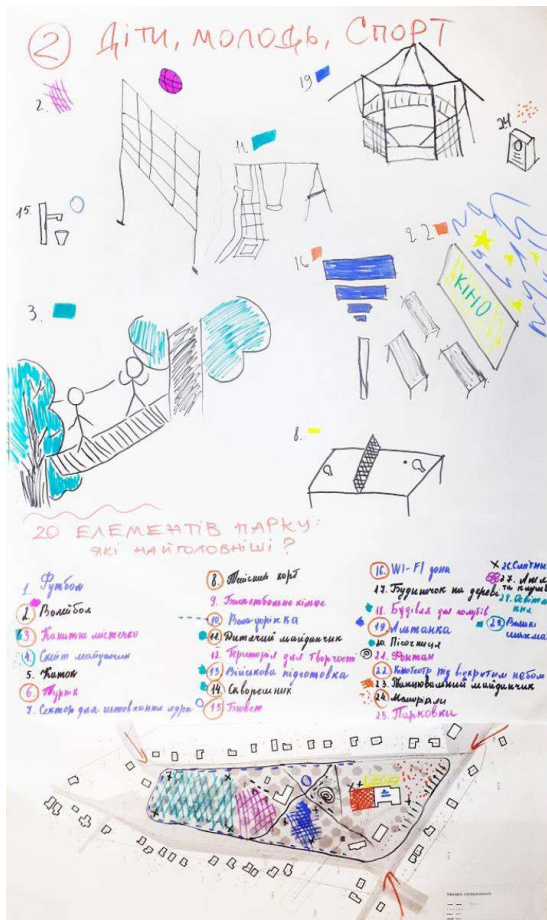 2 Діти, молодь, Спорт
2.
19
11.
24
15.
16
22
КІНО
3.
8.
20 ЕЛЕМЕНТІВ ПАРКУ:
ЯКІ НАЙГОЛОВНІШІ?
1. Футбол
2 Волейбол
3 Канатне містечко
4. Скейт майданчик
5. Каток
6 Турнік
7. Сектор для штовхання ядра
8. Тенісний корт
9. Баскетбольне кільце
10 Велодоріжка
11 Дитячий майданчик
12. Територія для творчості
13 Військова підготовка
14 Скворошник
15 Бювет
16. WI-FI зона
17. Будиночок на дереві
18. Будівля для голубів
19 Альтанка
20. Пісочниця
21. Фонтан
22 Кінотеатр під відкритим небом
23. Танцювальний майданчик
24.
25. Парковки
26.
27.
28. Освітлення
29. Великі шахма